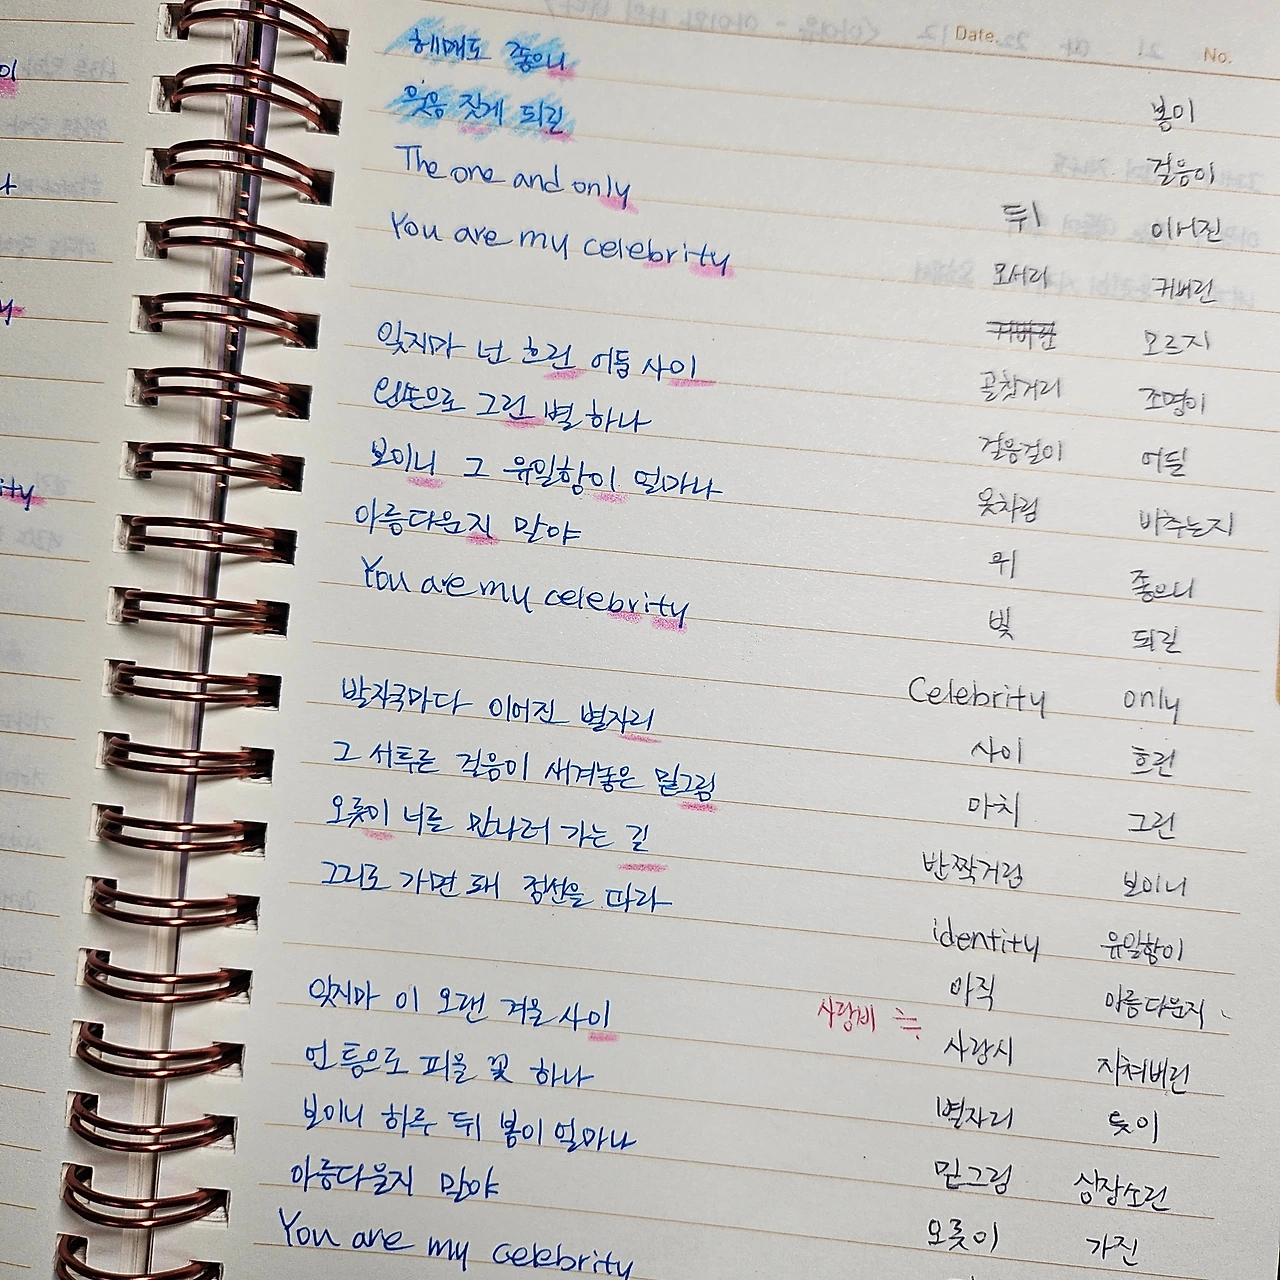 Date.
No.
헤매도 좋으니
웃음 짓게 되길
The one and only
You are my celebrity
잊지마 넌 흐린 어둠 사이
왼손으로 그린 별 하나
보이니 그 유일함이 얼마나
아름다운지 말야
You are my celebrity
발자국마다 이어진 별자리
그 서투른 걸음이 새겨놓은 밑그림
오롯이 너를 만나러 가는 길
그리로 가면 돼 점선을 따라
잊지마 이 오랜 겨울 사이
언 틈으로 피울 꽃 하나
보이니 하루 뒤 봄이 얼마나
아름다울지 말야
You are my celebrity
뒤
모서리
커버린
골칫거리
걸음걸이
옷차림
뒤
빛
Celebrity
사이
마치
반짝거림
identity
아직
사랑비 ≒ 사랑시
별자리
밑그림
오롯이
봄이
걸음이
이어진
커버린
모르지
조명이
어딜
비추는지
좋으니
되길
only
흐린
그린
보이니
유일함이
아름다운지
지쳐버린
듯이
상장소련
가진